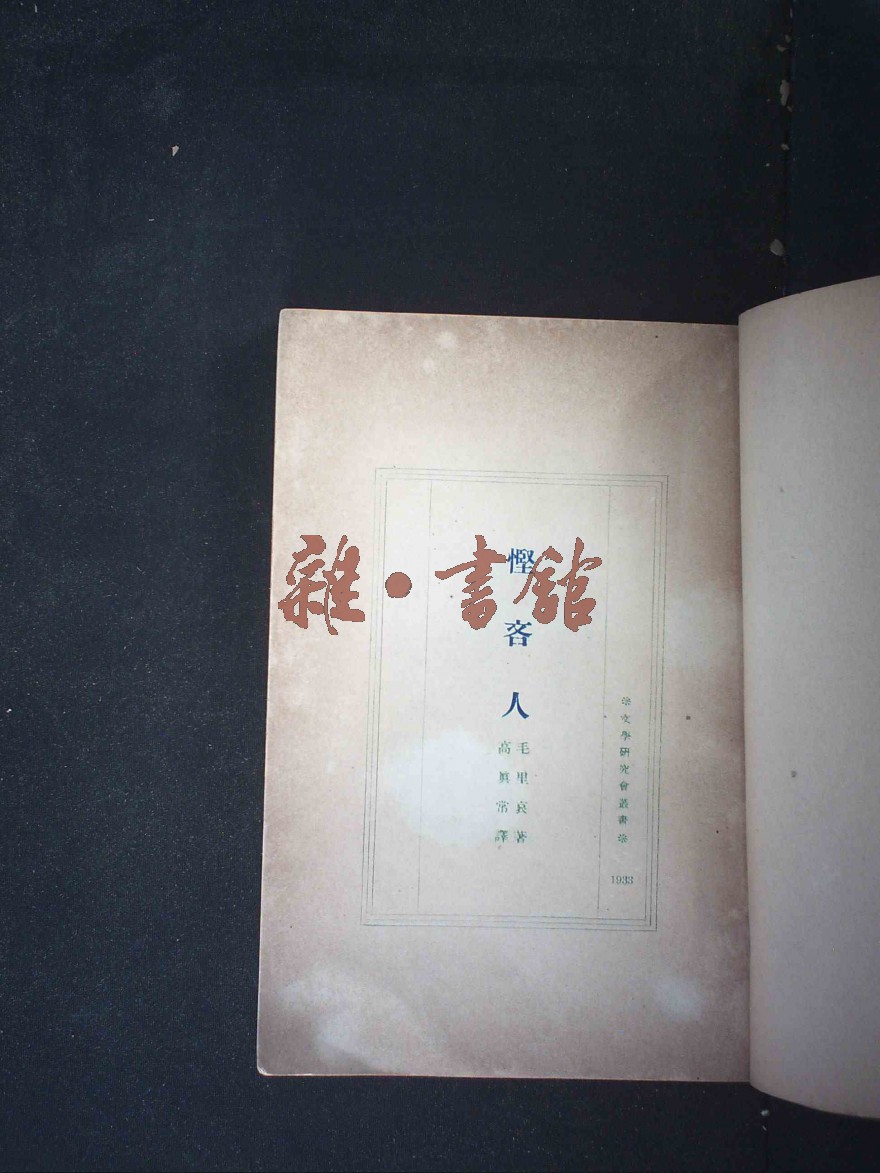 雜·書館
慳吝人
毛里哀著
高眞常譯
※文學研究會叢書※
1933